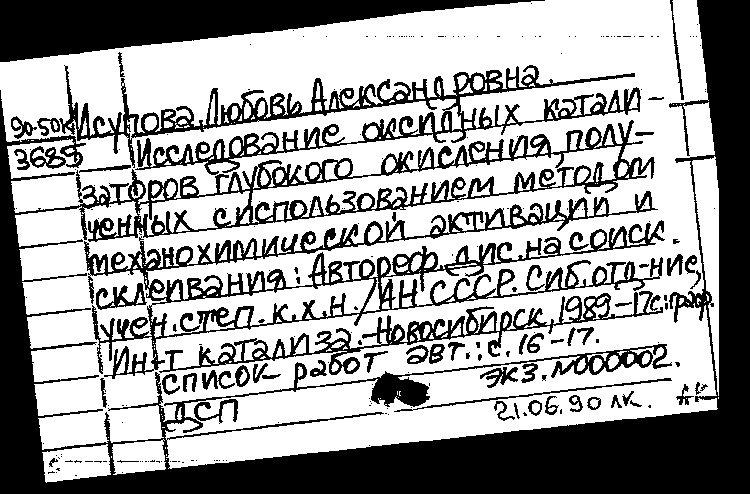 90-50К Исупова, Любовь Александровна.
3685 Исследование оксидных катали-
заторов глубокого окисления, полу-
ченных с использованием методом
механохимической активации и
склеивания: Автореф. дис. на соиск.
учен. степ. к.х.н. / АН СССР. Сиб. отд-ние,
Ин-т катализа.-Новосибирск, 1989.-17с.: граф.
список работ авт.: с. 16-17.
ЭКЗ. №000002.
ДСП
21.06.90 ЛК. АК